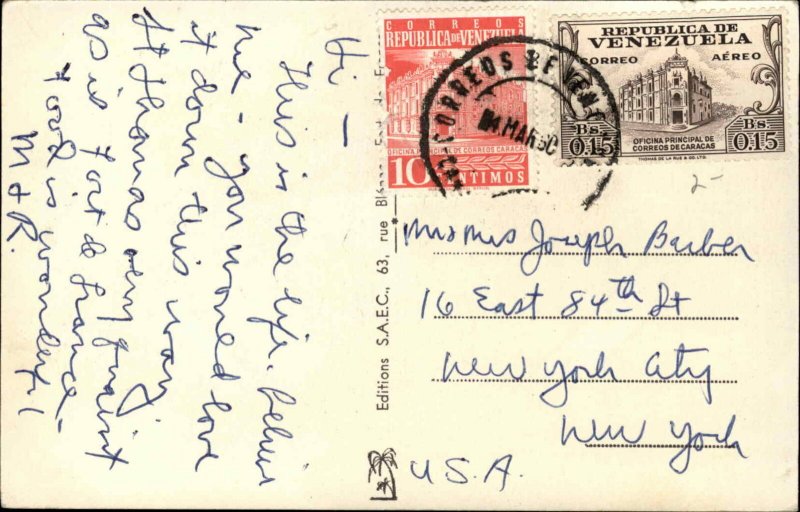 Hi —
This is the life. Believe
me - you would love
it down this way
St Thomas very quaint
as is Fort de France -
Food is wonderful
M & R.
Editions S.A.E.C., 63, rue
CORREOS
REPUBLICA DE VENEZUELA
OFICINA PRINCIPAL DE CORREOS CARACAS
10 CENTIMOS
CORREOS DE VEN
MAR 60
REPUBLICA DE
VENEZUELA
CORREO AÉREO
Bs. 0.15 Bs. 0.15
OFICINA PRINCIPAL DE
CORREOS DE CARACAS
THOMAS DE LA RUE & CO. LTD.
2-
Mr & Mrs Joseph Barber
16 East 84th St
New York City
New York
U.S.A.